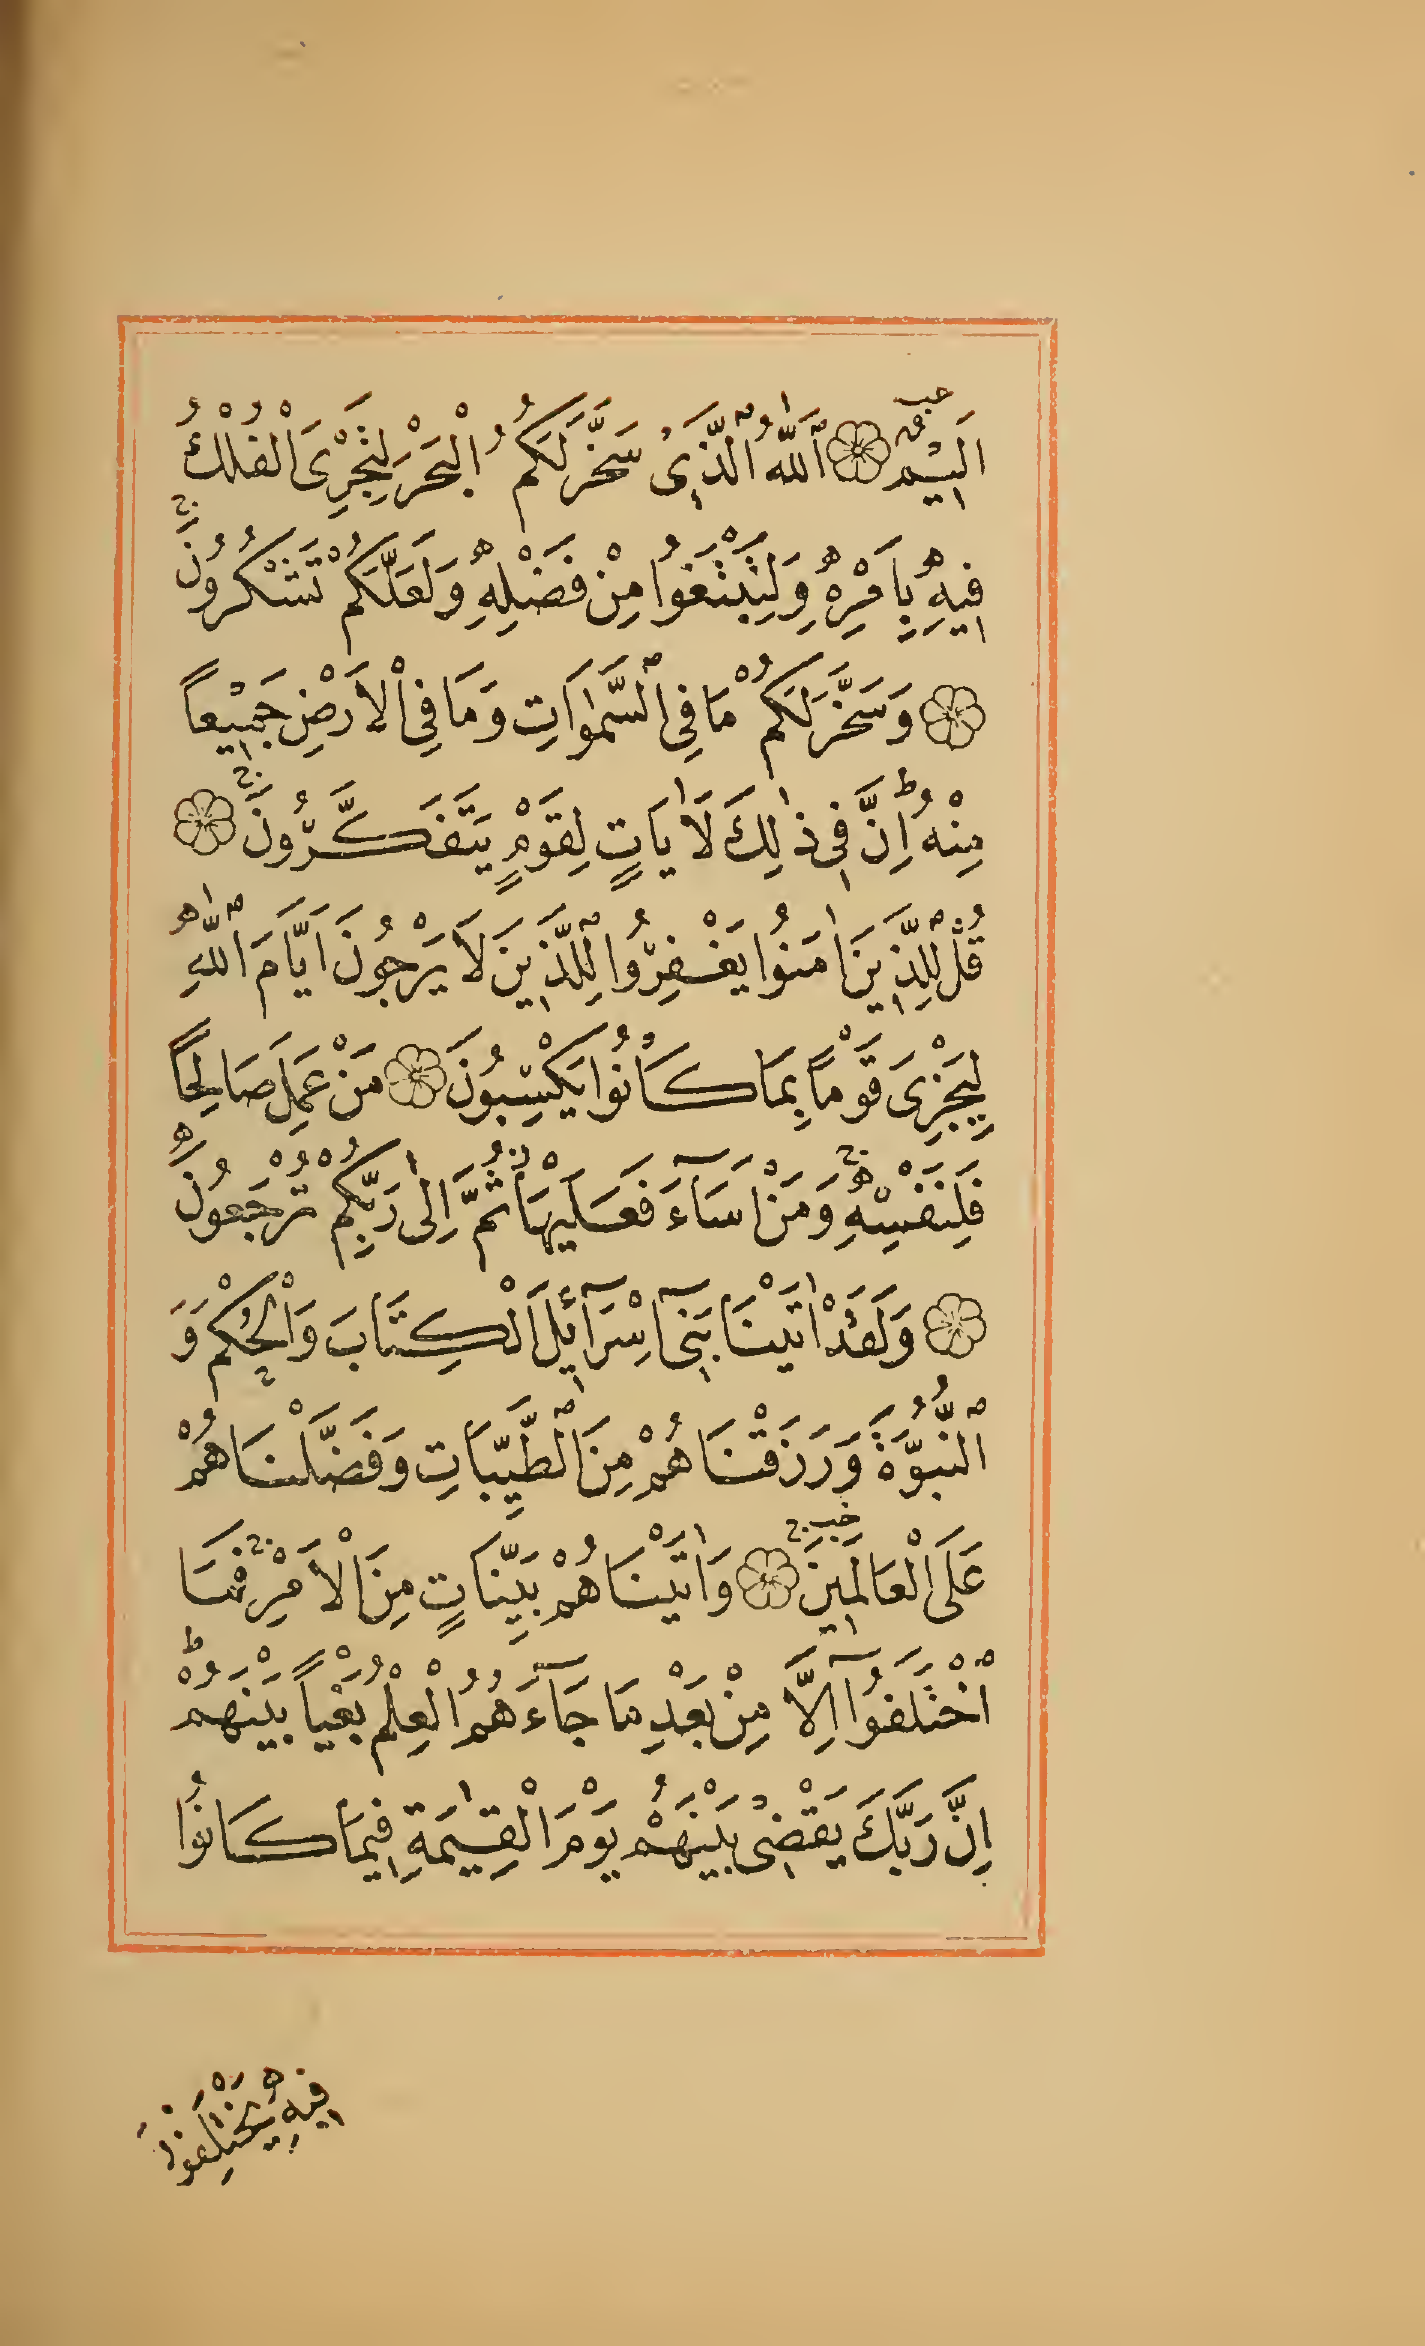 اَلِيمٌ ۞ اَللّٰهُ الَّذِى سَخَّرَ لَكُمُ الْبَحْرَ لِتَجْرِىَ الْفُلْكُ
فِيهِ بِاَمْرِهِ وَلِتَبْتَغُوا مِنْ فَضْلِهِ وَلَعَلَّكُمْ تَشْكُرُونَ
۞ وَسَخَّرَ لَكُمْ مَا فِى السَّمٰوَاتِ وَمَا فِى الْاَرْضِ جَمِيعاً
مِنْهُ اِنَّ فِى ذٰلِكَ لَاٰيَاتٍ لِقَوْمٍ يَتَفَكَّرُونَ ۞
قُلْ لِلَّذِينَ اٰمَنُوا يَغْفِرُوا لِلَّذِينَ لَا يَرْجُونَ اَيَّامَ اللّٰهِ
لِيَجْزِىَ قَوْماً بِمَا كَانُوا يَكْسِبُونَ ۞ مَنْ عَمِلَ صَالِحاً
فَلِنَفْسِهِ وَمَنْ اَسَآءَ فَعَلَيْهَا ثُمَّ اِلٰى رَبِّكُمْ تُرْجَعُونَ
۞ وَلَقَدْ اٰتَيْنَا بَنِىٓ اِسْرَآئِلَ الْكِتَابَ وَالْحُكْمَ وَ
النُّبُوَّةَ وَرَزَقْنَاهُمْ مِنَ الطَّيِّبَاتِ وَفَضَّلْنَاهُمْ
عَلَى الْعَالَمِينَ ۞ وَاٰتَيْنَاهُمْ بَيِّنَاتٍ مِنَ الْاَمْرِ فَمَا
اخْتَلَفُوٓا اِلَّا مِنْ بَعْدِ مَا جَآءَهُمُ الْعِلْمُ بَغْياً بَيْنَهُمْ
اِنَّ رَبَّكَ يَقْضِى بَيْنَهُمْ يَوْمَ الْقِيٰمَةِ فِيمَا كَانُوا
فِيهِ يَخْتَلِفُونَ